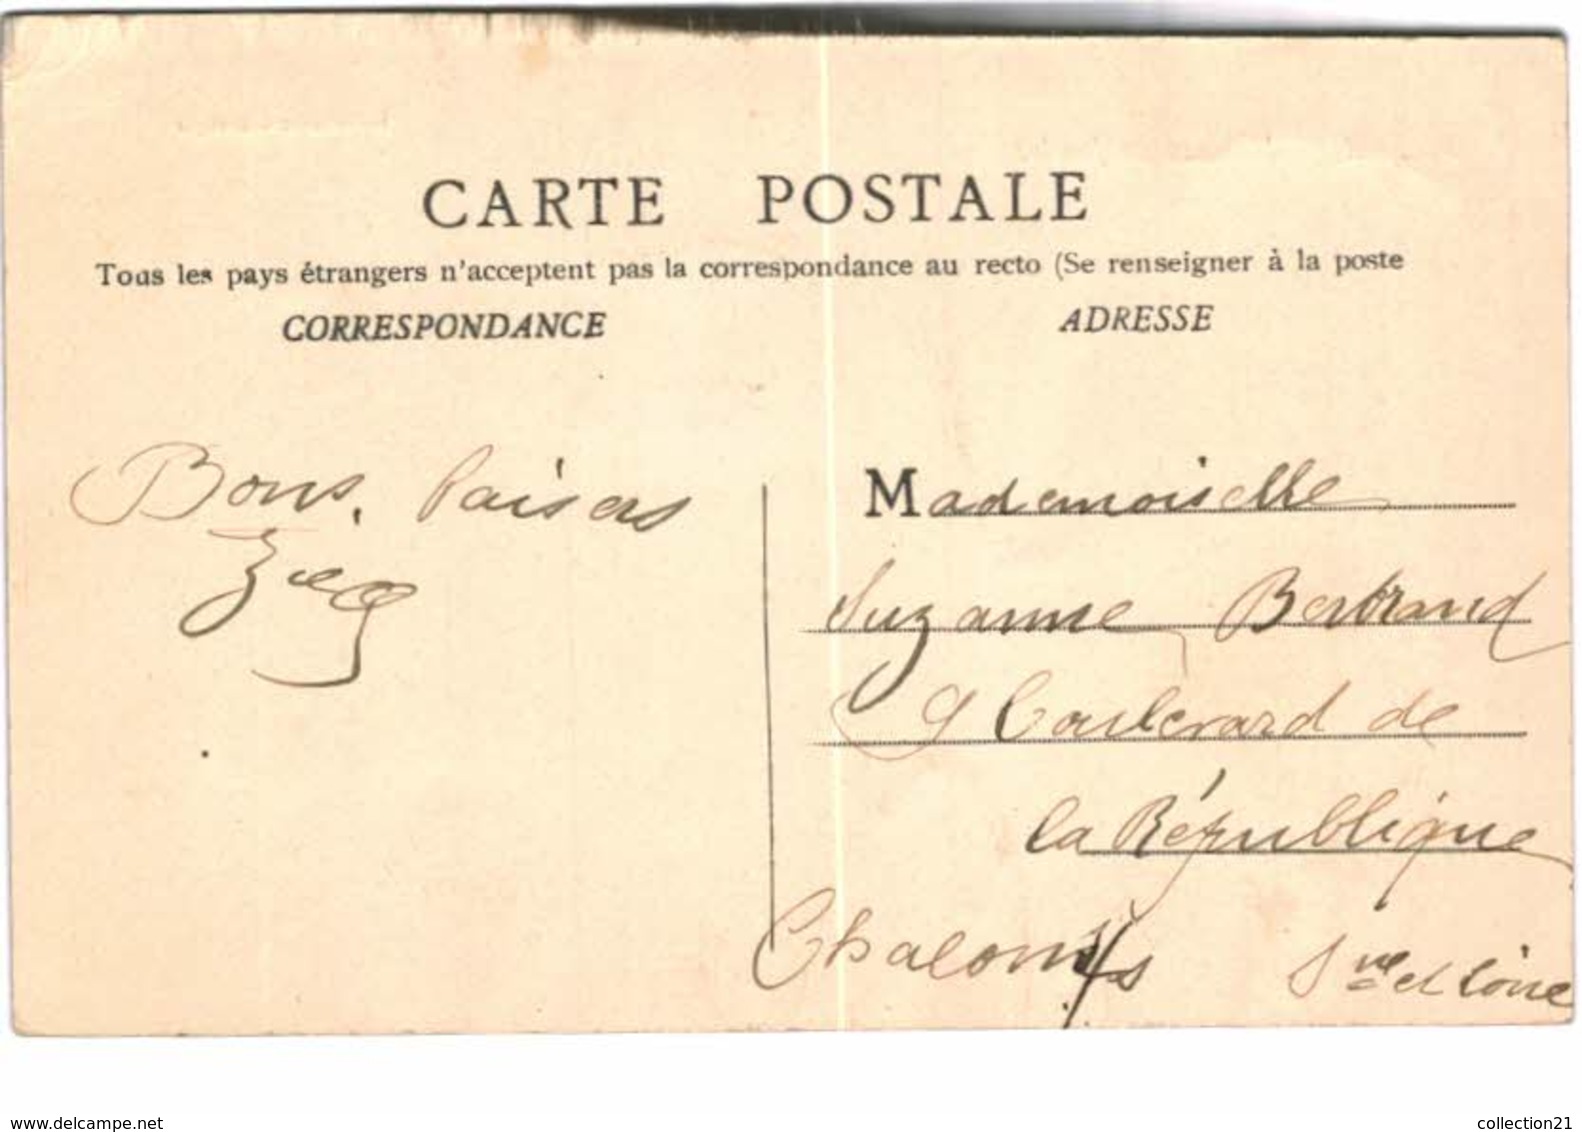 CARTE POSTALE
Tous les pays étrangers n'acceptent pas la correspondance au recto (Se renseigner à la poste
CORRESPONDANCE
ADRESSE
Bons baisers
Mademoiselle
Suzanne Bertrand
9 boulevard de
la République
Chalon s/s S ne et Loire
www.delcampe.net
collection21